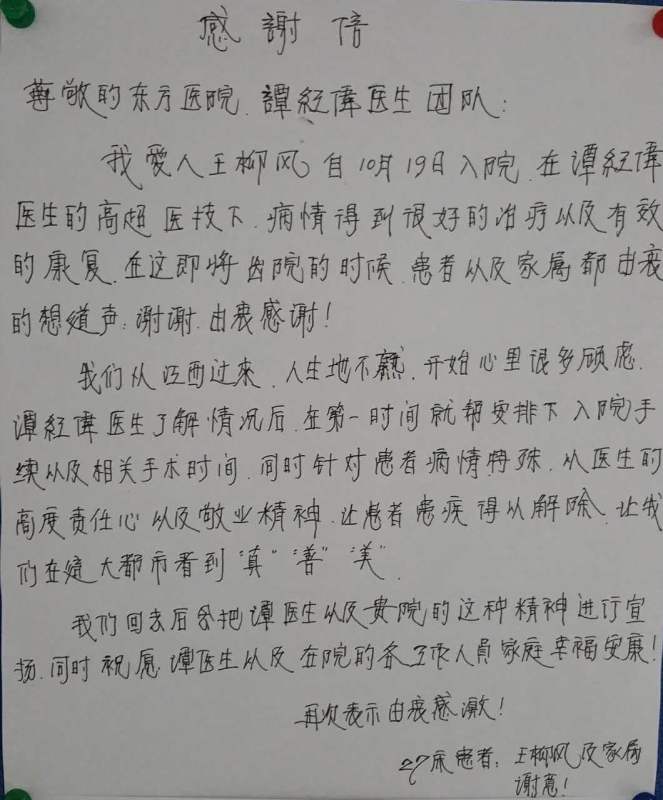 感謝信
尊敬的东方医院、譚紅偉医生团队：
我愛人王柳风自10月19日入院、在谭紅偉
医生的高超医技下、病情得到很好的治疗以及有效
的康复、在这即将出院的时候、患者以及家属都由衷
的想道声：谢谢、由衷感谢！
我们从江西过來、人生地不熟、开始心里很多顾虑、
谭紅偉医生了解情况后、在第一时间就帮安排下入院手
续以及相关手术时间、同时针对患者病情特殊、从医生的
高度责任心以及敬业精神、让患者患疾得以解除、让我
们在这大都市看到“真”“善”“美”、
我们回去后会把谭医生以及贵院的这种精神进行宣
扬、同时祝愿谭医生以及在院的各工作人員家庭幸福安康！
再次表示由衷感激！
27床患者：王柳风及家属
谢意！